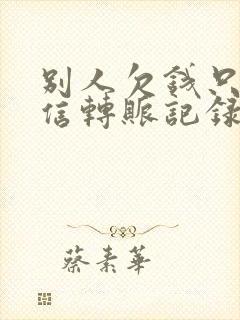 别人欠錢只
信轉賬記録
蔡素華